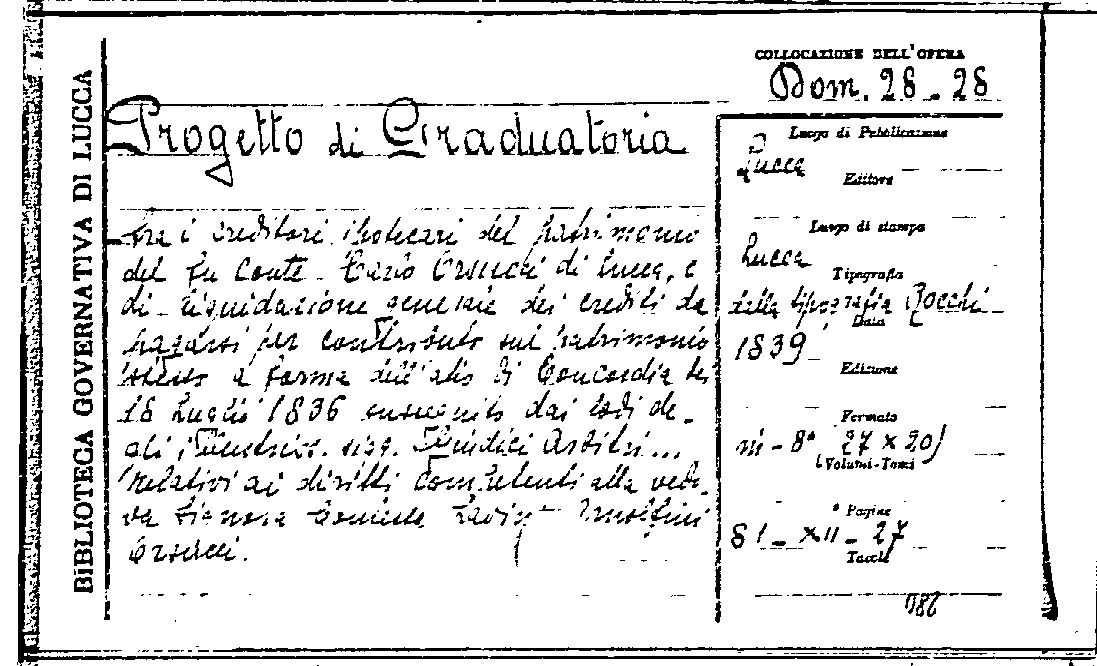 BIBLIOTECA GOVERNATIVA DI LUCCA
COLLOCAZIONE DELL'OPERA
Dom. 28 - 28
Progetto di Graduatoria
fra i creditori ipotecari del patrimonio
del fu Conte Carlo Orsucci di Lucca, e
di liquidazione generale dei crediti da
pagarsi per contributo sul patrimonio
stesso a forma dell'atto di Concordia del
18 Luglio 1836 susseguito dai lodi de-
gli Illustriss. sigg. Giudici Arbitri...
relativi ai diritti competenti alla vedo-
va Signora Orsucci.
Luogo di Pubblicazione
Lucca
Editore
Luogo di stampa
Lucca
Tipografia
dalla tipografia Rocchi
Data
1839
Edizione
Formato
in - 8° (27 x 20)
Volumi-Tomi
Pagine
81 - XII - 27
Tavole
086